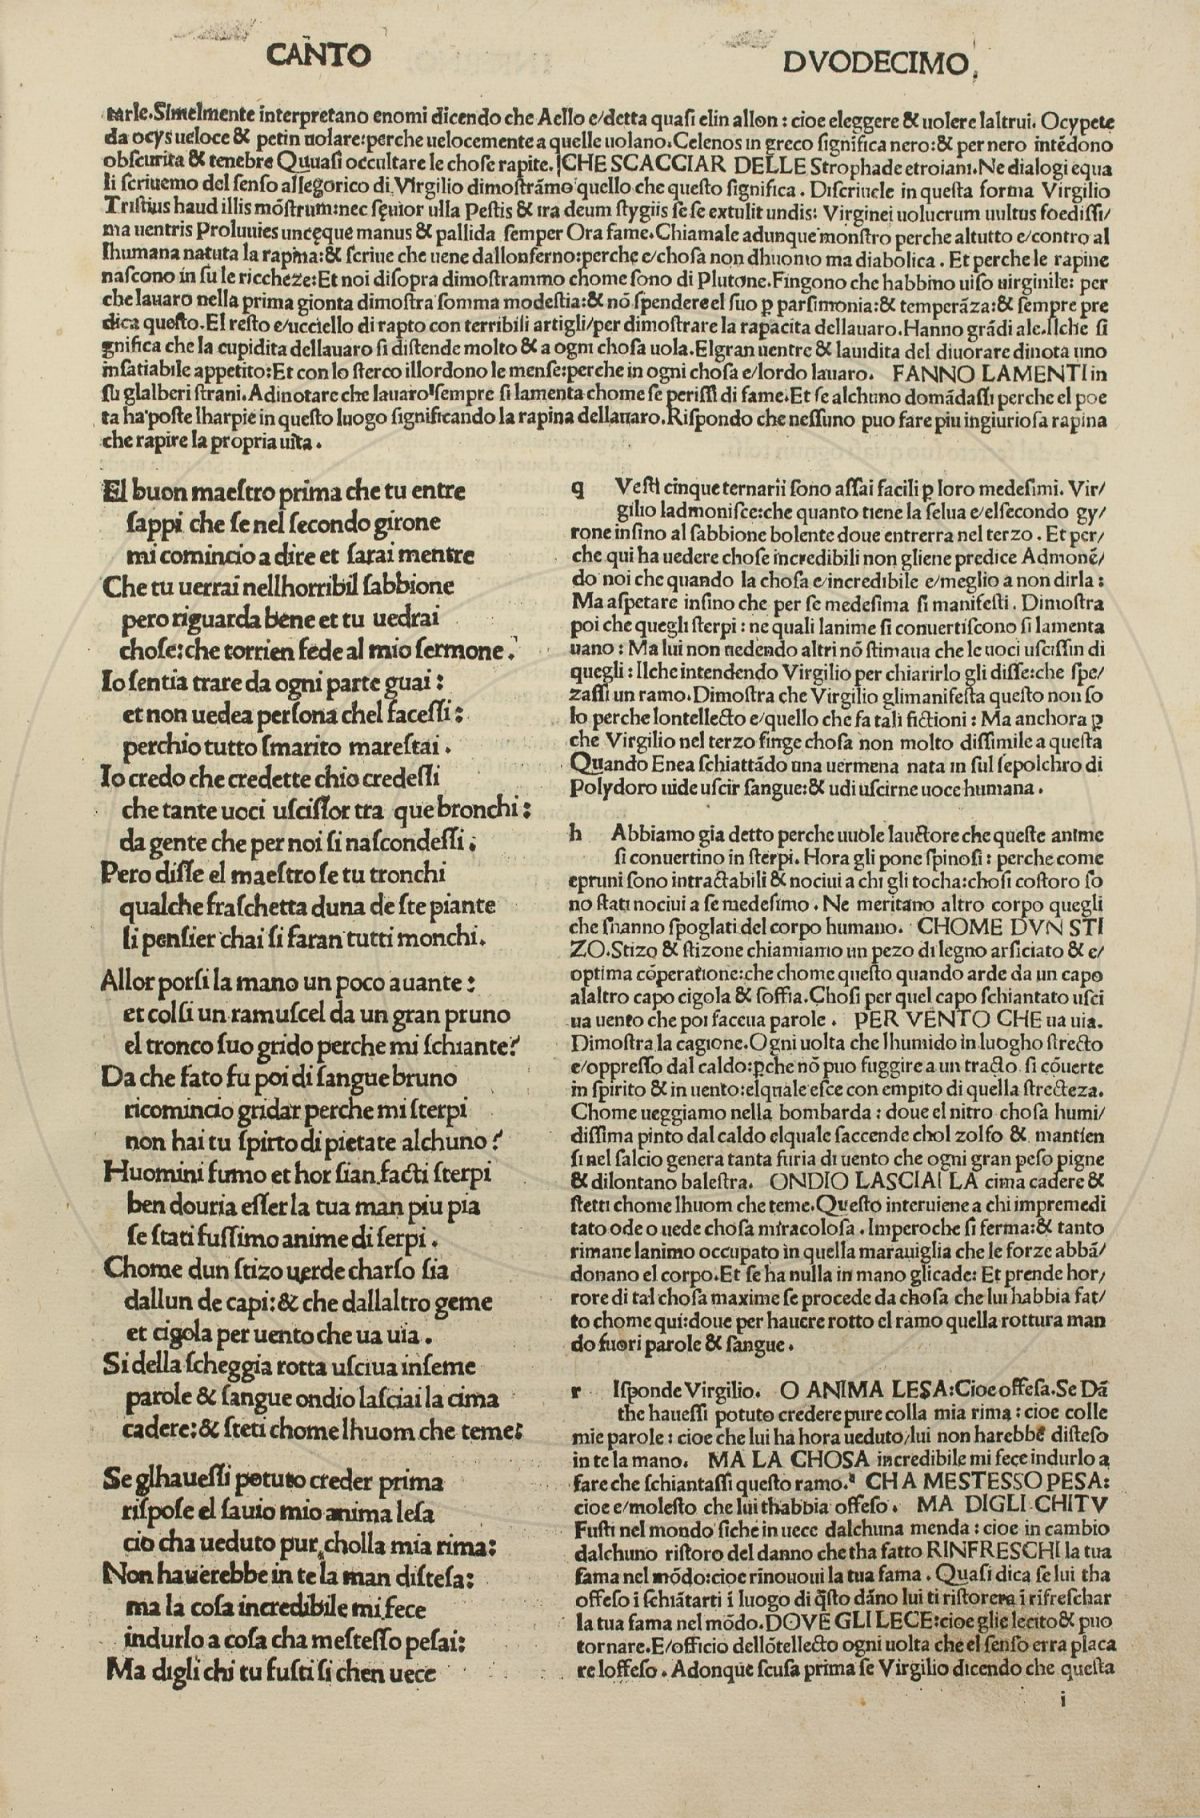 CANTO DVODECIMO.
tarle.Simelmente interpretano enomi dicendo che Aello e/detta quasi elin allon : cioe eleggere & uolere laltrui. Ocypete
da ocys ueloce & petin uolare:perche uelocemente a quelle uolano.Celenos in greco significa nero:& per nero intēdono
obscurita & tenebre Quuasi occultare le chose rapite. CHE SCACCIAR DELLE Strophade etroiani.Ne dialogi equa
li scriuemo del senso allegorico di Virgilio dimostrāmo quello che questo significa . Discriuele in questa forma Virgilio
Tristius haud illis mōstrum:nec sęuior ulla Pestis & ira deum stygiis se se extulit undis: Virginei uolucrum uultus foedissi/
ma uentris Proluuies uncęque manus & pallida semper Ora fame.Chiamale adunque monstro perche altutto e/contro al
lhumana natura la rapina:& scriue che uene dallonferno:perche e/chosa non dhuomo ma diabolica . Et perche le rapine
nascono in su le riccheze:Et noi disopra dimostrammo chome sono di Plutone.Fingono che habbino uiso uirginile: per
che lauaro nella prima gionta dimostra somma modestia:& nō spendere el suo p parsimonia:& temperāza:& sempre pre
dica questo.El resto e/uccello di rapto con terribili artigli/per dimostrare la rapacita dellauaro.Hanno grādi ale.Ilche si
gnifica che la cupidita dellauaro si distende molto & a ogni chosa uola.Elgran uentre & lauidita del diuorare dinota uno
insatiabile appetito:Et con lo sterco illordono le mense:perche in ogni chosa e/lordo lauaro. FANNO LAMENTI in
su glalberi strani.Adinotare che lauaro sempre si lamenta chome se perissi di fame.Et se alchuno domādassi perche el poe
ta ha poste lharpie in questo luogo significando la rapina dellauaro.Rispondo che nessuno puo fare piu ingiuriosa rapina
che rapire la propria uita .
El buon maestro prima che tu entre
sappi che se nel secondo girone
mi comincio a dire et sarai mentre
Che tu uerrai nellhorribil sabbione
pero riguarda bene et tu uedrai
chose:che torrien fede al mio sermone .
Io sentia trare da ogni parte guai :
et non uedea persona chel facessi :
perchio tutto smarito marestai .
Io credo che credette chio credessi
che tante uoci uscissor tra que bronchi :
da gente che per noi si nascondessi .
Pero disse el maestro se tu tronchi
qualche fraschetta duna de ste piante
li pensier chai si faran tutti monchi.
Allor porsi la mano un poco auante :
et colsi un ramuscel da un gran pruno
el tronco suo grido perche mi schiante?
Da che fato fu poi di sangue bruno
ricomincio gridar perche mi sterpi
non hai tu spirto di pietate alchuno ?
Huomini fumo et hor sian facti sterpi
ben douria esser la tua man piu pia
se stati fussimo anime di serpi .
Chome dun stizo uerde charso sia
dallun de capi:& che dallaltro geme
et cigola per uento che ua uia .
Si della scheggia rotta usciua inseme
parole & sangue ondio lasciai la cima
cadere:& steti chome lhuom che teme:
Se glhauessi potuto creder prima
rispose el sauio mio anima lesa
cio cha ueduto pur cholla mia rima:
Non hauerebbe in te la man distesa:
ma la cosa incredibile mi fece
indurlo a cosa cha mestesso pesai:
Ma digli chi tu fusti si chen uece
q Vesti cinque ternarii sono assai facili p loro medesimi. Vir/
gilio ladmonisce:che quanto tiene la selua e/elsecondo gy/
rone insino al sabbione bolente doue entrerra nel terzo . Et per/
che qui ha uedere chose incredibili non gliene predice Admonē/
do noi che quando la chosa e/incredibile e/meglio a non dirla :
Ma aspetare insino che per se medesima si manifesti . Dimostra
poi che quegli sterpi : ne quali lanime si conuertiscono si lamenta
uano : Ma lui non uedendo altri nō stimaua che le uoci uscissin di
quegli : Ilche intendendo Virgilio per chiarirlo gli disse:che spe/
zassi un ramo.Dimostra che Virgilio glimanifesta questo non so
lo perche lontellecto e/quello che fa tali fictioni : Ma anchora p
che Virgilio nel terzo finge chosa non molto dissimile a questa
Quando Enea schiattādo una uermena nata in sul sepolchro di
Polydoro uide uscir sangue:& udi uscirne uoce humana .
h Abbiamo gia detto perche uuole lauctore che queste anime
si conuertino in sterpi. Hora gli pone spinosi : perche come
epruni sono intractabili & nociui a chi gli tocha:chosi costoro so
no stati nociui a se medesimo . Ne meritano altro corpo quegli
che shanno spoglati del corpo humano. CHOME DVN STI
ZO.Stizo & stizone chiamiamo un pezo di legno arsiciato & e/
optima cōperatione:che chome questo quando arde da un capo
alaltro capo cigola & soffia.Chosi per quel capo schiantato usci
ua uento che poi faceua parole . PER VENTO CHE ua uia.
Dimostra la cagione.Ogni uolta che lhumido in luogho strecto
e/oppresso dal caldo:pche nō puo fuggire a un tracto si cōuerte
in spirito & in uento:elquale esce con empito di quella strecteza.
Chome ueggiamo nella bombarda : doue el nitro chosa humi/
dissima pinto dal caldo elquale saccende chol zolfo & mantien
si nel salcio genera tanta furia di uento che ogni gran peso pigne
& dilontano balestra. ONDIO LASCIAI LA cima cadere &
stetti chome lhuom che teme.Questo interuiene a chi impremedi
tato ode o uede chosa miracolosa . Imperoche si ferma:& tanto
rimane lanimo occupato in quella marauiglia che le forze abbā/
donano el corpo.Et se ha nulla in mano glicade: Et prende hor/
rore di tal chosa maxime se procede da chosa che lui habbia fat/
to chome qui:doue per hauere rotto el ramo quella rottura man
do fuori parole & sangue .
r Isponde Virgilio. O ANIMA LESA:Cioe offesa.Se Dā
the hauessi potuto credere pure colla mia rima : cioe colle
mie parole : cioe che lui ha hora ueduto/lui non harebbe disteso
in te la mano. MA LA CHOSA incredibile mi fece indurlo a
fare che schiantassi questo ramo. CH A MESTESSO PESA:
cioe e/molesto che lui thabbia offeso . MA DIGLI CHI TV
Fusti nel mondo siche in uece dalchuna menda : cioe in cambio
dalchuno ristoro del danno che tha fatto RINFRESCHI la tua
fama nel mōdo:cioe rinououi la tua fama . Quasi dica se lui tha
offeso ī schiātarti ī luogo di q̄sto dāno lui ti ristorera ī rifreschar
la tua fama nel mōdo.DOVE GLI LECE:cioe glie lecito & puo
tornare.E/officio dellōtellecto ogni uolta che el senso erra placa
re loffeso . Adonque scusa prima se Virgilio dicendo che questa
i